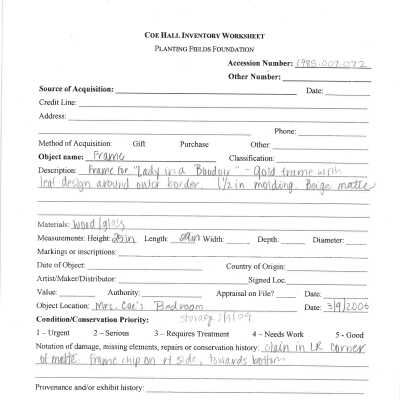 COE HALL INVENTORY WORKSHEET
PLANTING FIELDS FOUNDATION
Accession Number: 1985.007.072
Other Number:
Source of Acquisition: Date:
Credit Line:
Address:
Phone:
Method of Acquisition: Gift Purchase Other:
Object name: Frame Classification:
Description: Frame for "Lady in a Boudoir" - Gold frame with
leaf design around outer border. 1 1/2 in molding. Beige matte
Materials: wood/glass
Measurements: Height: 25in Length: Width: Depth: Diameter:
Markings or inscriptions:
Date of Object: Country of Origin:
Artist/Maker/Distributor: Signed Loc.
Value: Authority: Appraisal on File? Date:
Object Location: Mrs. Coe's Bedroom Date: 3/9/2006
Condition/Conservation Priority: storage
1 – Urgent 2 – Serious 3 – Requires Treatment 4 – Needs Work 5 - Good
Notation of damage, missing elements, repairs or conservation history: stain in LR corner
of matte. Frame chip on rt side, towards bottom
Provenance and/or exhibit history: